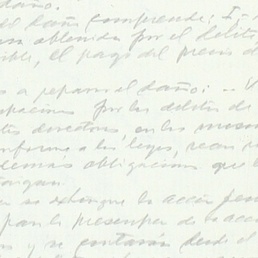 daño.
el daño comprende: I.-
obtenida por el delito
ible, el pago del precio d
a reparar el daño: --
por los delitos de
directores, en los mismos
conforme a las leyes, sean
demás obligaciones que
torgan
se extingue la acción pen
por la presunper de la acci
y se contarán desde el